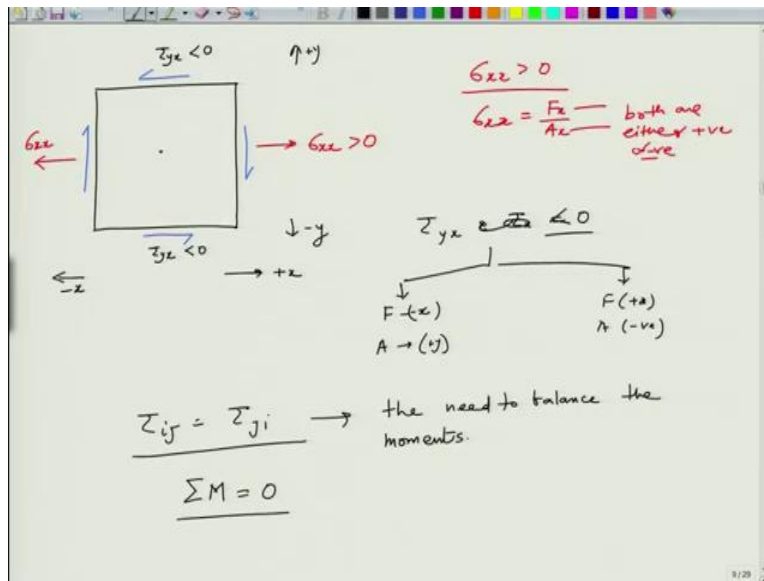 τyx < 0
↑ +y
σxx > 0
σxx
→ σxx > 0
σxx = Fx / Ax — both are
either +ve
or -ve
τyx < 0
↓ -y
-x
→ +x
τyx < 0
F (-x)
A → (+y)
F (+x)
A (-ve)
τij = τji → the need to balance the
moments.
ΣM = 0
9/29